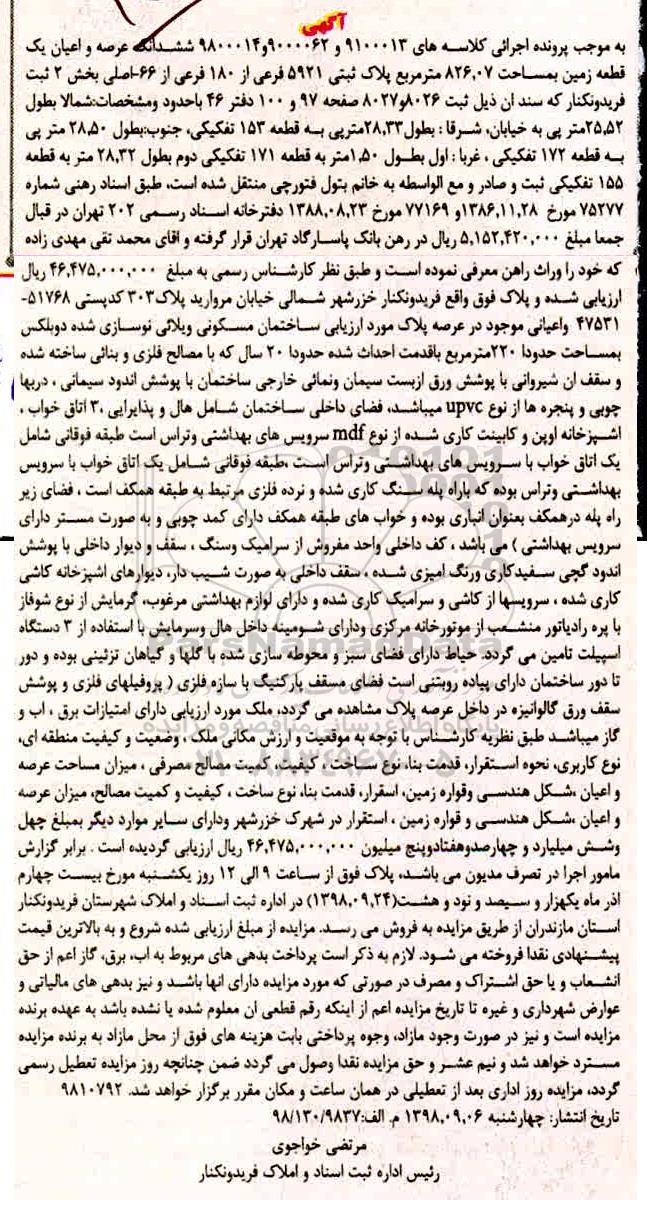 آگهی
به موجب پرونده اجرائی کلاسه های ۹۱۰۰۰۱۳ و ۹۰۰۰۰۶۲و۹۸۰۰۰۱۴ ششدانگ عرصه و اعیان یک
قطعه زمین بمساحت ۸۲۶,۰۷ مترمربع پلاک ثبتی ۵۹۲۱ فرعی از ۱۸۰ فرعی از ۶۶-اصلی بخش ۲ ثبت
فریدونکنار که سند ان ذیل ثبت ۸۰۲۶و۸۰۲۷ صفحه ۹۷ و ۱۰۰ دفتر ۴۶ باحدود ومشخصات:شمالا بطول
۲۵,۵۲متر پی به خیابان، شرقا : بطول۲۸,۳۳مترپی به قطعه ۱۵۳ تفکیکی، جنوب:بطول ۲۸,۵۰ متر پی
به قطعه ۱۷۲ تفکیکی ، غربا : اول بطول ۱,۵۰متر به قطعه ۱۷۱ تفکیکی دوم بطول ۲۸,۳۲ متر به قطعه
۱۵۵ تفکیکی ثبت و صادر و مع الواسطه به خانم بتول فتورچی منتقل شده است، طبق اسناد رهنی شماره
۷۵۲۷۷ مورخ ۱۳۸۶,۱۱,۲۸و ۷۷۱۶۹ مورخ ۱۳۸۸,۰۸,۲۳ دفترخانه اسناد رسمی ۲۰۲ تهران در قبال
جمعا مبلغ ۵,۱۵۲,۴۲۰,۰۰۰ ریال در رهن بانک پاسارگاد تهران قرار گرفته و اقای محمد تقی مهدی زاده
که خود را وراث راهن معرفی نموده است و طبق نظر کارشناس رسمی به مبلغ ۴۶,۴۷۵,۰۰۰,۰۰۰ ریال
ارزیابی شده و پلاک فوق واقع فریدونکنار خزرشهر شمالی خیابان مروارید پلاک۳۰۳ کدپستی ۵۱۷۶۸-
۴۷۵۳۱ واعیانی موجود در عرصه پلاک مورد ارزیابی ساختمان مسکونی ویلائی نوسازی شده دوبلکس
بمساحت حدودا ۲۲۰مترمربع باقدمت احداث شده حدودا ۲۰ سال که با مصالح فلزی و بنائی ساخته شده
و سقف ان شیروانی با پوشش ورق ازبست سیمان ونمائی خارجی ساختمان با پوشش اندود سیمانی ، دربها
چوبی و پنجره ها از نوع upvc میباشد، فضای داخلی ساختمان شامل هال و پذایرایی ،۳ اتاق خواب ،
اشپزخانه اوپن و کابینت کاری شده از نوع mdf سرویس های بهداشتی وتراس است طبقه فوقانی شامل
یک اتاق خواب با سرویس های بهداشتی وتراس است ،طبقه فوقانی شامل یک اتاق خواب با سرویس
بهداشتی وتراس بوده که باراه پله سنگ کاری شده و نرده فلزی مرتبط به طبقه همکف است ، فضای زیر
راه پله درهمکف بعنوان انباری بوده و خواب های طبقه همکف دارای کمد چوبی و به صورت مستر دارای
سرویس بهداشتی ) می باشد ، کف داخلی واحد مفروش از سرامیک وسنگ ، سقف و دیوار داخلی با پوشش
اندود گچی سفیدکاری ورنگ امیزی شده ، سقف داخلی به صورت شیب دار، دیوارهای اشپزخانه کاشی
کاری شده ، سرویسها از کاشی و سرامیک کاری شده و دارای لوازم بهداشتی مرغوب، گرمایش از نوع شوفاز
با پره رادیاتور منشعب از موتورخانه مرکزی ودارای شومینه داخل هال وسرمایش با استفاده از ۳ دستگاه
اسپیلت تامین می گردد، حیاط دارای فضای سبز و محوطه سازی شده با گلها و گیاهان تزئینی بوده و دور
تا دور ساختمان دارای پیاده روبتنی است فضای مسقف پارکینگ با سازه فلزی ( پروفیلهای فلزی و پوشش
سقف ورق گالوانیزه در داخل عرصه پلاک مشاهده می گردد، ملک مورد ارزیابی دارای امتیازات برق ، اب و
گاز میباشد طبق نظریه کارشناس با توجه به موقعیت و ارزش مکانی ملک ، وضعیت و کیفیت منطقه ای،
نوع کاربری، نحوه استقرار، قدمت بنا، نوع ساخت ، کیفیت، کمیت مصالح مصرفی ، میزان مساحت عرصه
و اعیان ،شکل هندسی وقواره زمین، اسقرار، قدمت بنا، نوع ساخت ، کیفیت و کمیت مصالح، میزان عرصه
و اعیان ،شکل هندسی و قواره زمین ، استقرار در شهرک خزرشهر ودارای سایر موارد دیگر بمبلغ چهل
وشش میلیارد و چهارصدوهفتادوپنج میلیون ۴۶,۴۷۵,۰۰۰,۰۰۰ ریال ارزیابی گردیده است . برابر گزارش
مامور اجرا در تصرف مدیون می باشد، پلاک فوق از ساعت ۹ الی ۱۲ روز یکشنبه مورخ بیست چهارم
اذر ماه یکهزار و سیصد و نود و هشت(۱۳۹۸,۰۹,۲۴) در اداره ثبت اسناد و املاک شهرستان فریدونکنار
استان مازندران از طریق مزایده به فروش می رسد. مزایده از مبلغ ارزیابی شده شروع و به بالاترین قیمت
پیشنهادی نقدا فروخته می شود. لازم به ذکر است پرداخت بدهی های مربوط به اب، برق، گاز اعم از حق
انشعاب و یا حق اشتراک و مصرف در صورتی که مورد مزایده دارای انها باشد و نیز بدهی های مالیاتی و
عوارض شهرداری و غیره تا تاریخ مزایده اعم از اینکه رقم قطعی ان معلوم شده یا نشده باشد به عهده برنده
مزایده است و نیز در صورت وجود مازاد، وجوه پرداختی بابت هزینه های فوق از محل مازاد به برنده مزایده
مسترد خواهد شد و نیم عشر و حق مزایده نقدا وصول می گردد ضمن چنانچه روز مزایده تعطیل رسمی
گردد، مزایده روز اداری بعد از تعطیلی در همان ساعت و مکان مقرر برگزار خواهد شد. ۹۸۱۰۷۹۲
تاریخ انتشار: چهارشنبه ۱۳۹۸,۰۹,۰۶ م.الف:۹۸/۱۳۰/۹۸۳۷
مرتضی خواجوی
رئیس اداره ثبت اسناد و املاک فریدونکنار